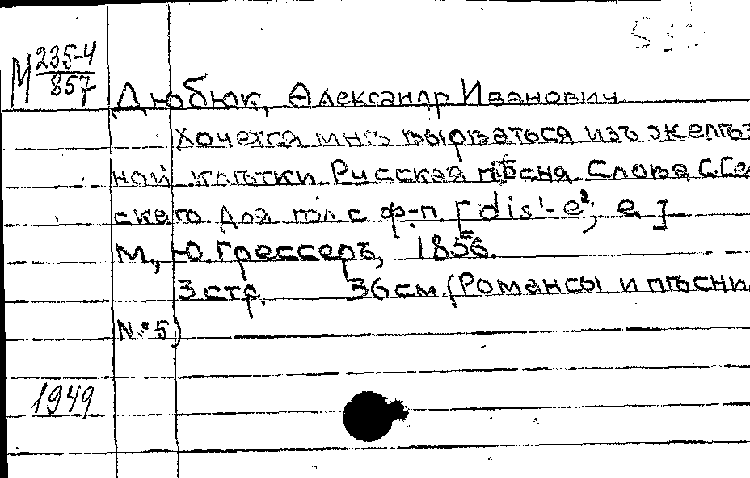 М 235-4
857
Дюбюк, Александр Иванович
Хочется мнѣ вырваться изъ желѣз
ной клѣтки. Русская пѣсня. Слова С.Се
скаго Для гол. с ф-п. [dis¹-e², e]
М, Ю. Грессеръ, 1856.
3 стр. 36 см. (Романсы и пѣсни
№ 5)
1949